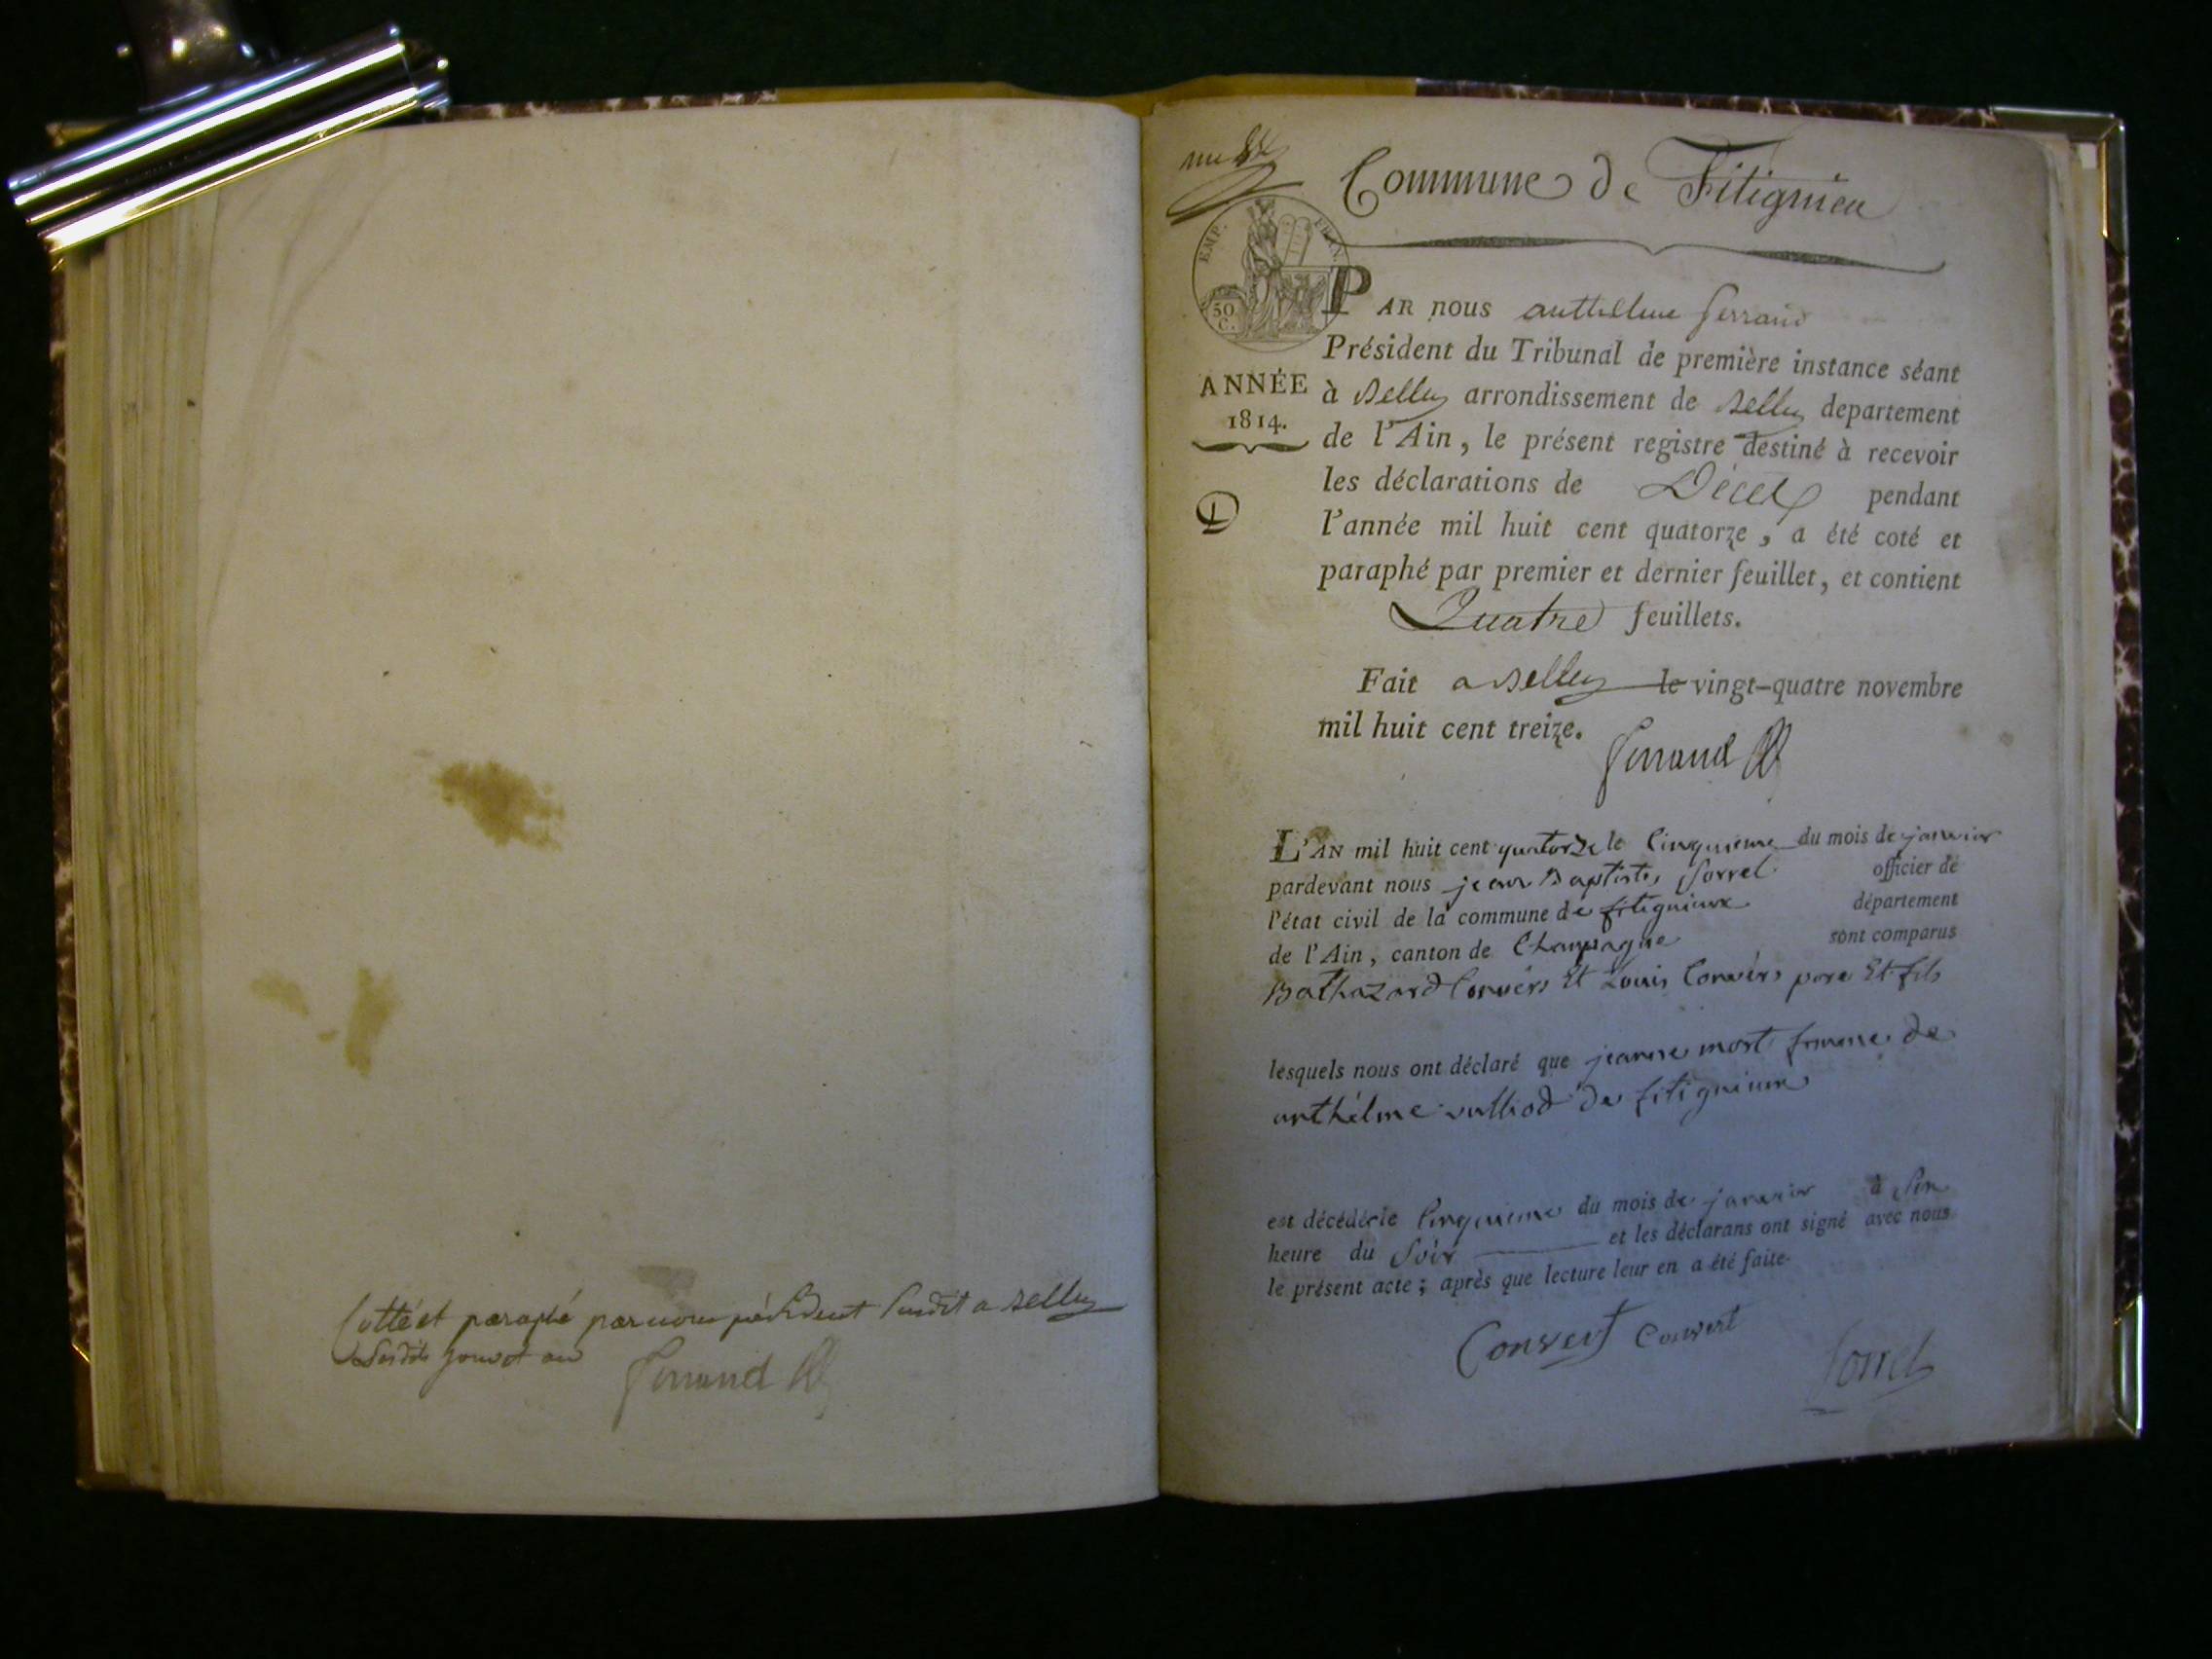 Cotté et paraphé par nous président susdit a Belley
lesdits jour et an
Ferrand
Commune de Fitignieu
EMP. FRAN.
50
C.
ANNÉE
1814.
PAR nous anthelme ferrand
Président du Tribunal de première instance séant
à Belley arrondissement de Belley departement
de l'Ain, le présent registre destiné à recevoir
les déclarations de Décès pendant
l'année mil huit cent quatorze, a été coté et
paraphé par premier et dernier feuillet, et contient
Quatre feuillets.
Fait a Belley le vingt-quatre novembre
mil huit cent treize.
Ferrand
L'AN mil huit cent quatorze le Cinquieme du mois de janvier
pardevant nous jean Baptiste Sorrel officier de
l'état civil de la commune de fitignieux département
de l'Ain, canton de Champagne sont comparus
Bathazard Convers Et Louis Convers pere Et fils
lesquels nous ont déclaré que jeanne mort femme de
anthélme vulliod de fitignieux
est décédé le Cinquieme du mois de janvier à
heure du Soir et les déclarans ont signé avec nous
le présent acte; après que lecture leur en a été faite.
Convert Convert
Sorrel